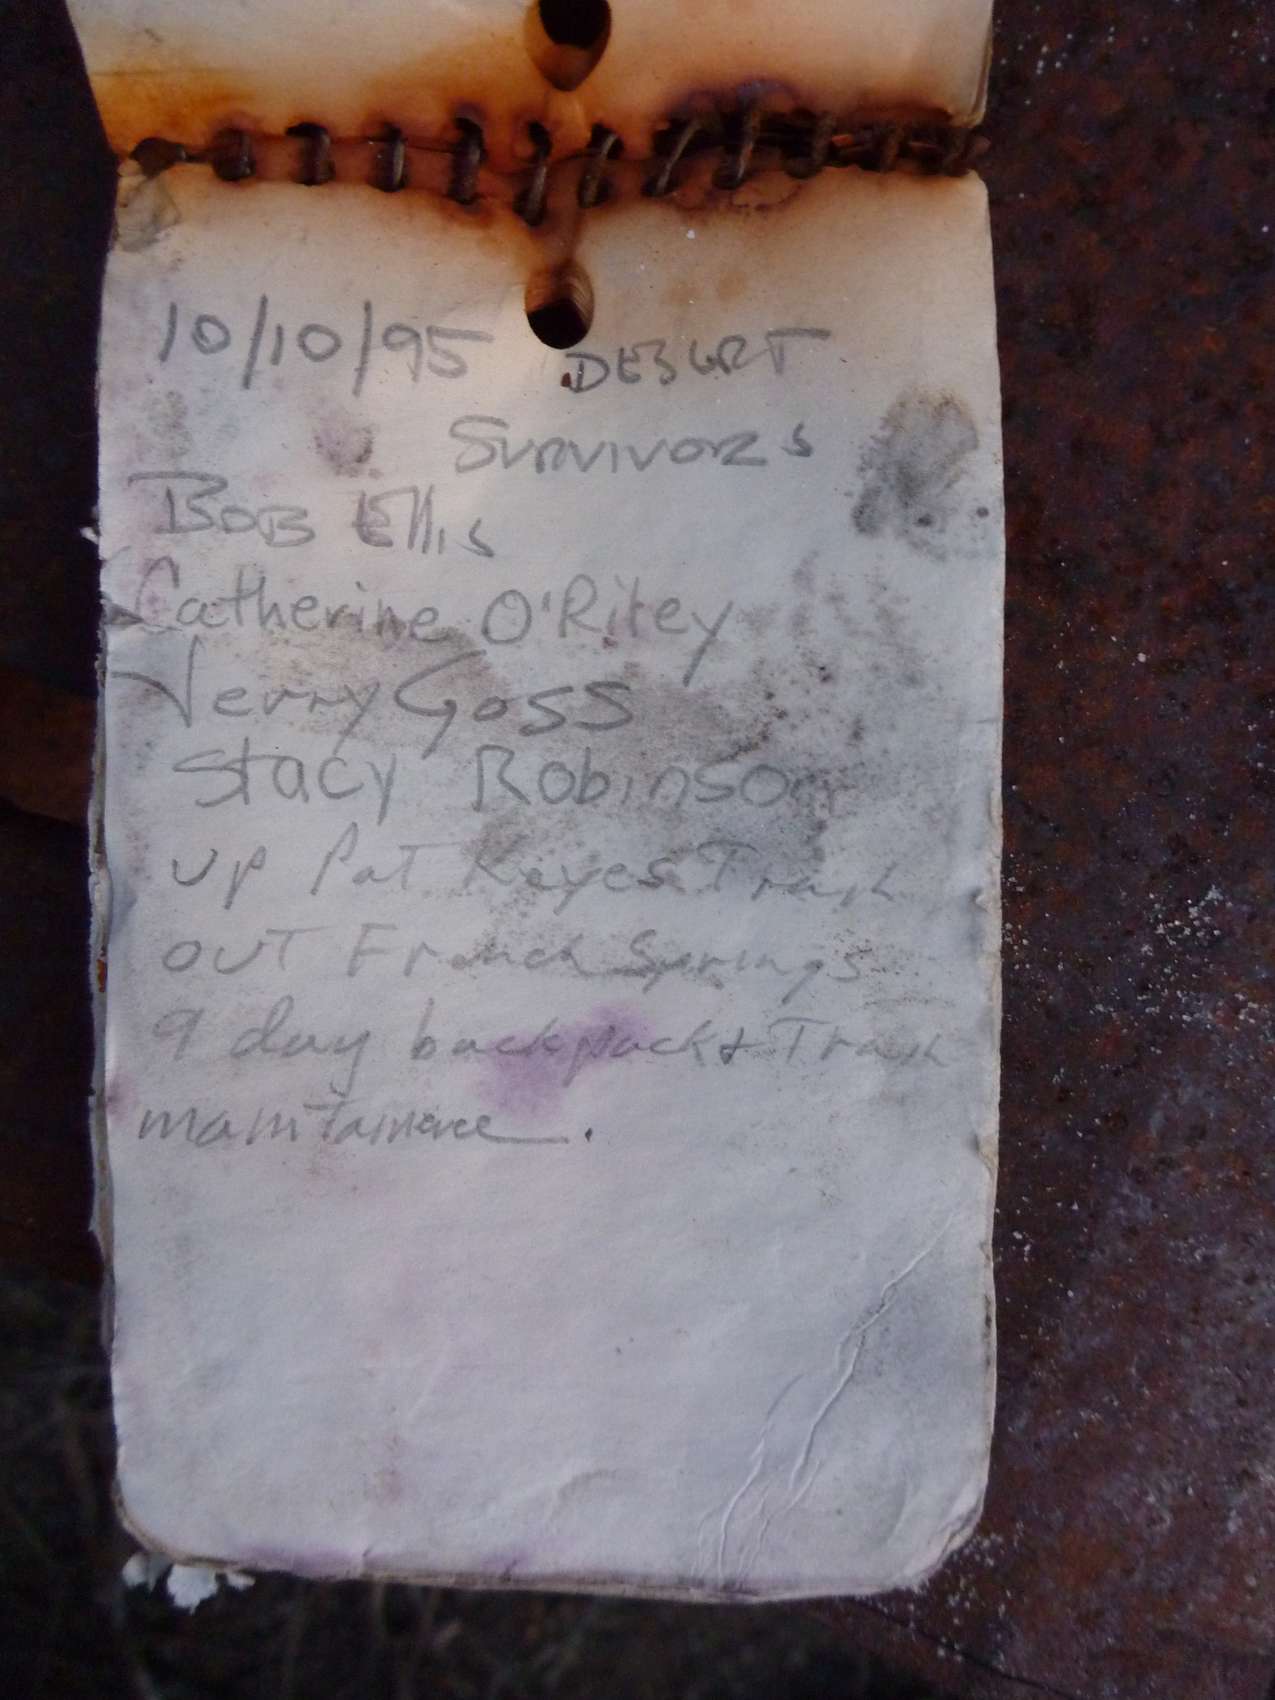 10/10/95 DESERT
SURVIVORS
BOB Ellis
Catherine O'Riley
Jerry Goss
Stacy Robinson
up Pat Keyes Trash
OUT French Springs
9 day backpack & Trash
maintainence.